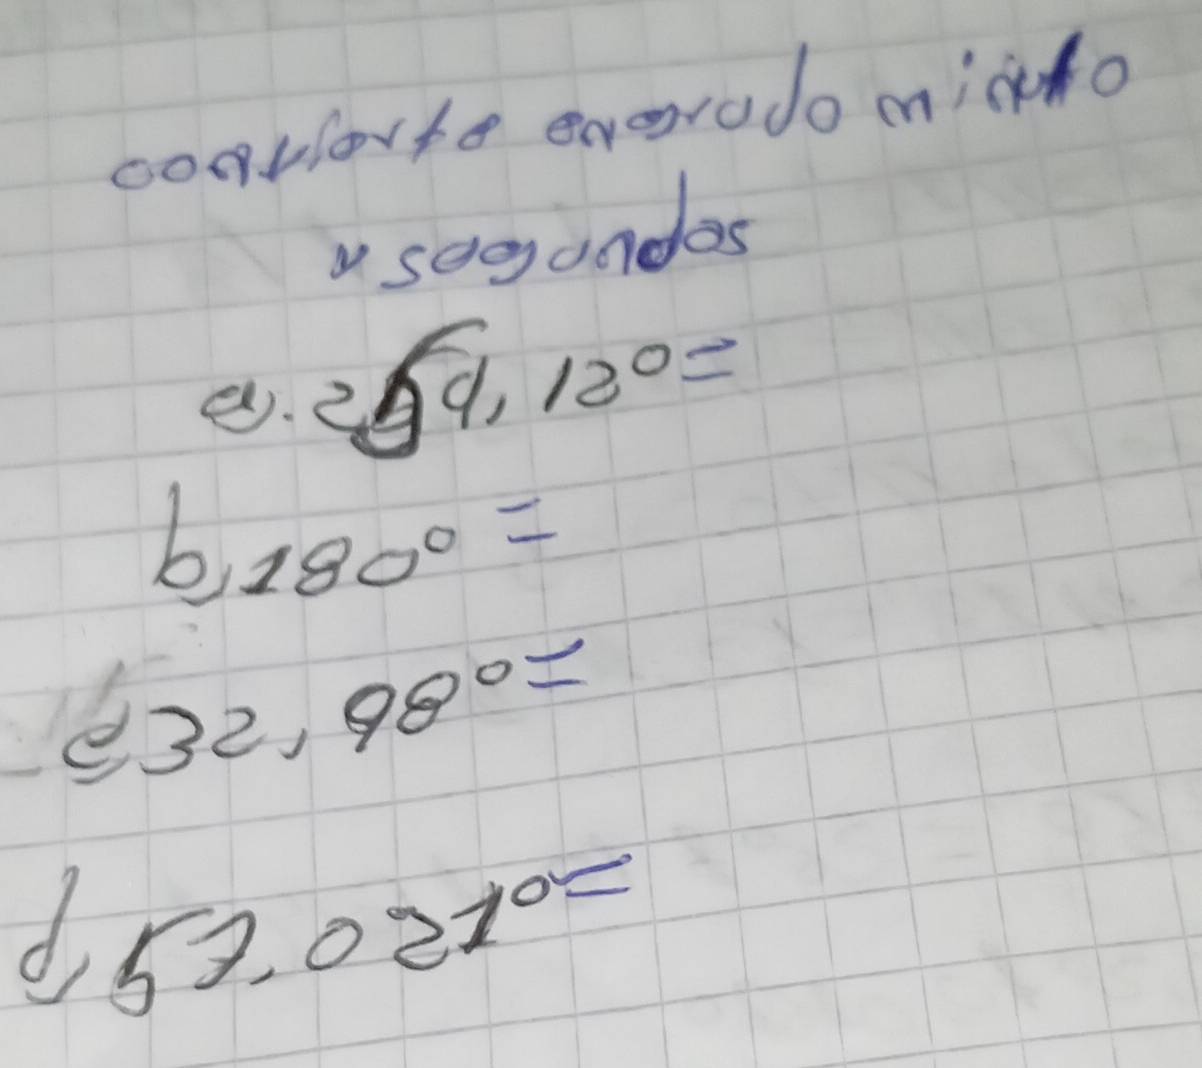 convierte en grado minuto
y segundos
a. 259,12°=
b, 180°=
c, 32,98°=
d, 57,021°=